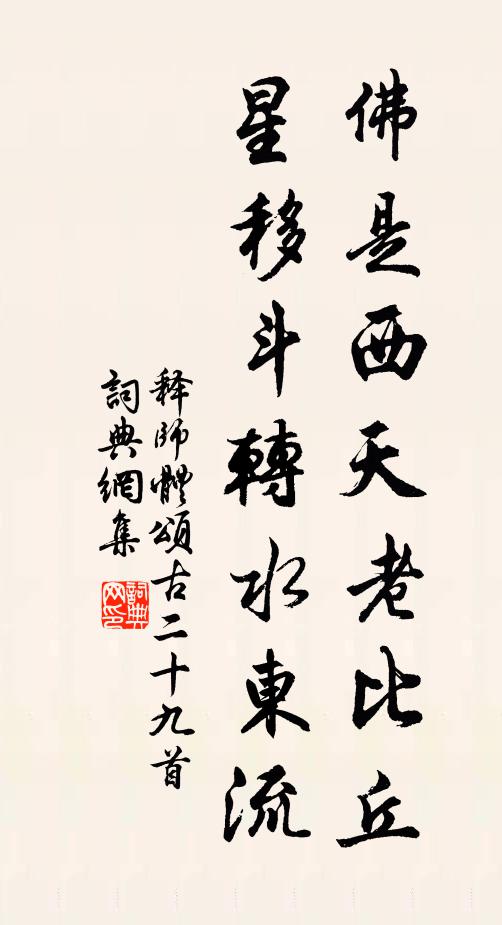 佛是西天老比丘
星移斗轉水東流
释師體頌古二十九首
詞典網集
詞典网印